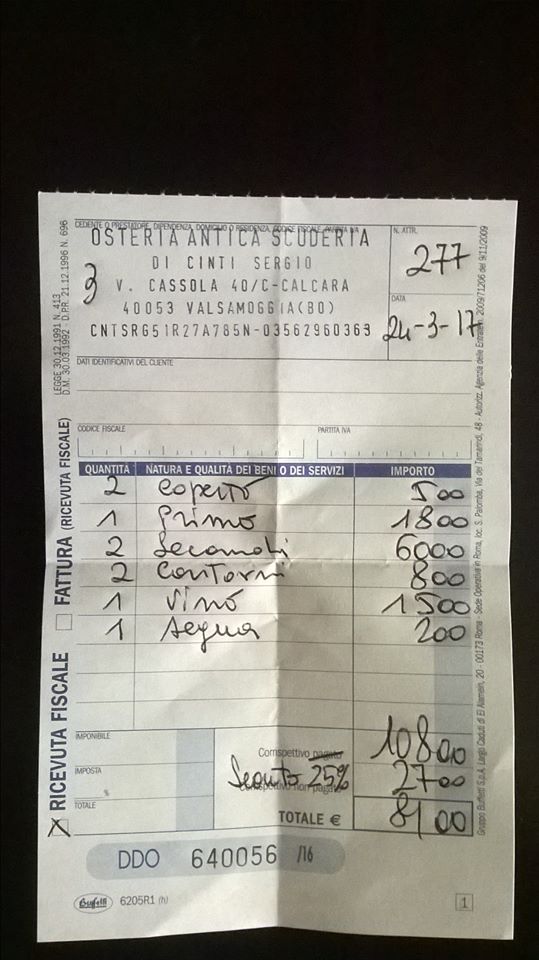 CEDENTE O PRESTATORE, DIPENDENZA, DOMICILIO O RESIDENZA, CODICE FISCALE, PARTITA IVA
OSTERIA ANTICA SCUDERIA
DI CINTI SERGIO
3 V. CASSOLA 40/C-CALCARA
40053 VALSAMOGGIA(BO)
CNTSRG51R27A785N-03562960363
N. ATTR.
277
DATA
24-3-17
LEGGE 30.12.1991 N. 413
D.M. 30.03.1992 D.P.R. 21.12.1996 N. 696
DATI IDENTIFICATIVI DEL CLIENTE
CODICE FISCALE PARTITA IVA
QUANTITÀ NATURA E QUALITÀ DEI BENI O DEI SERVIZI IMPORTO
2 coperto 500
1 Primo 1800
2 Secondi 6000
2 Contorni 800
1 Vino 1500
1 Acqua 200
IMPONIBILE
Corrispettivo pagato 10800
IMPOSTA
%
Sconto 25% 2700
Corrispettivo non pagato
TOTALE
TOTALE € 8100
X RICEVUTA FISCALE
FATTURA (RICEVUTA FISCALE)
DDO 640056 /16
Buffetti 6205R1 (h) 1
Gruppo Buffetti S.p.A. Largo Caduti di El Alamein, 20 - 00173 Roma - Sede Operativa in Roma, loc. S. Palomba, Via dei Tamarindi, 48 - Autorizz. Agenzia delle Entrate n. 2009/71206 del 9/11/2009